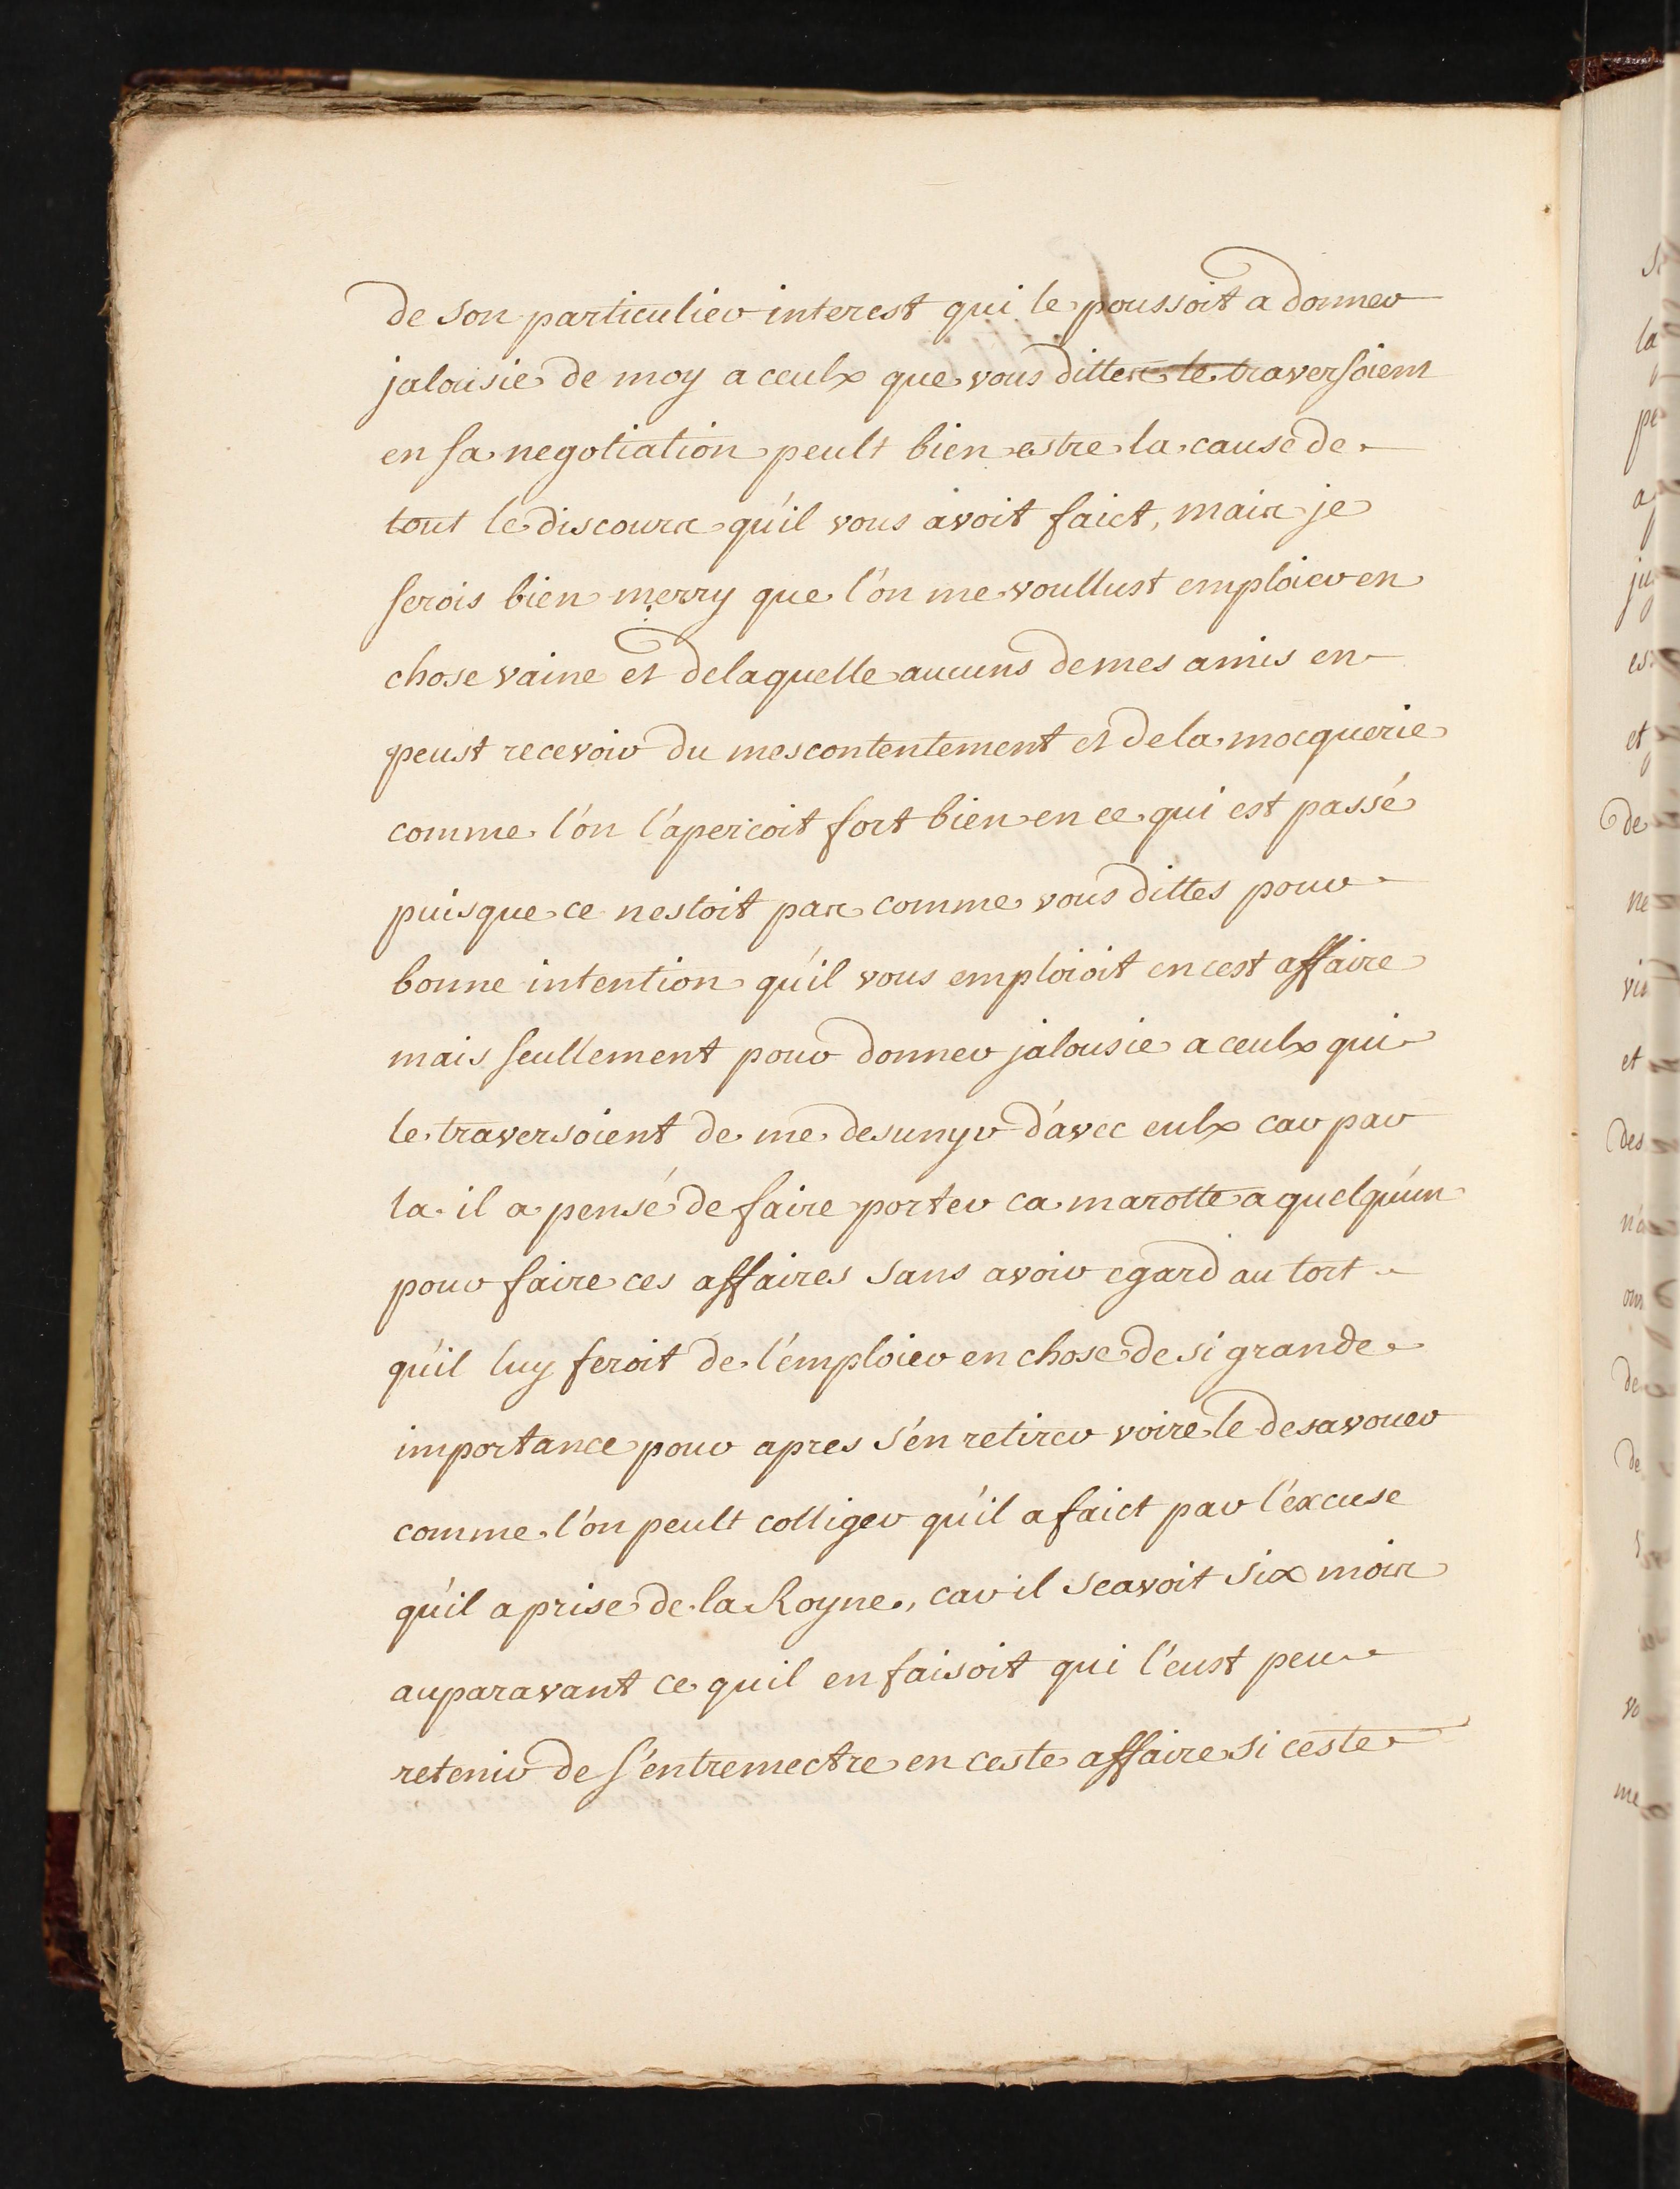 de son particulier interest qui le poussoit a donner
jalousie de moy a ceulx que vous dittes le traversoient
en sa negotiation peult bien estre la cause de
tout le discours qu'il vous avoit faict, mais je
serois bien merry que l'on me voullust emploier en
chose vaine et de laquelle aucuns de mes amis en
peust recevoir du mescontentement et de la mocquerie
comme l'on l'apercoit fort bien en ce qui est passé
puisque ce nestoit pas comme vous dittes pour
bonne intention qu'il vous emploioit en cest affaire
mais seullement pour donner jalousie a ceulx qui
le traversoient de me desunyr d'avec eulx car par
la il a pensé de faire porter ca marotte a quelqu'un
pour faire ces affaires sans avoir egard au tort
qu'il luy feroit de l'emploier en chose de si grande
importance pour apres s'en retirer voire le desavouer
comme l'on peult colliger qu'il a faict par l'excuse
qu'il a prise de la Royne, car il scavoit six mois
auparavant ce quil en faisoit qui l'eust peu
retenir de s'entremectre en ceste affaire si ceste